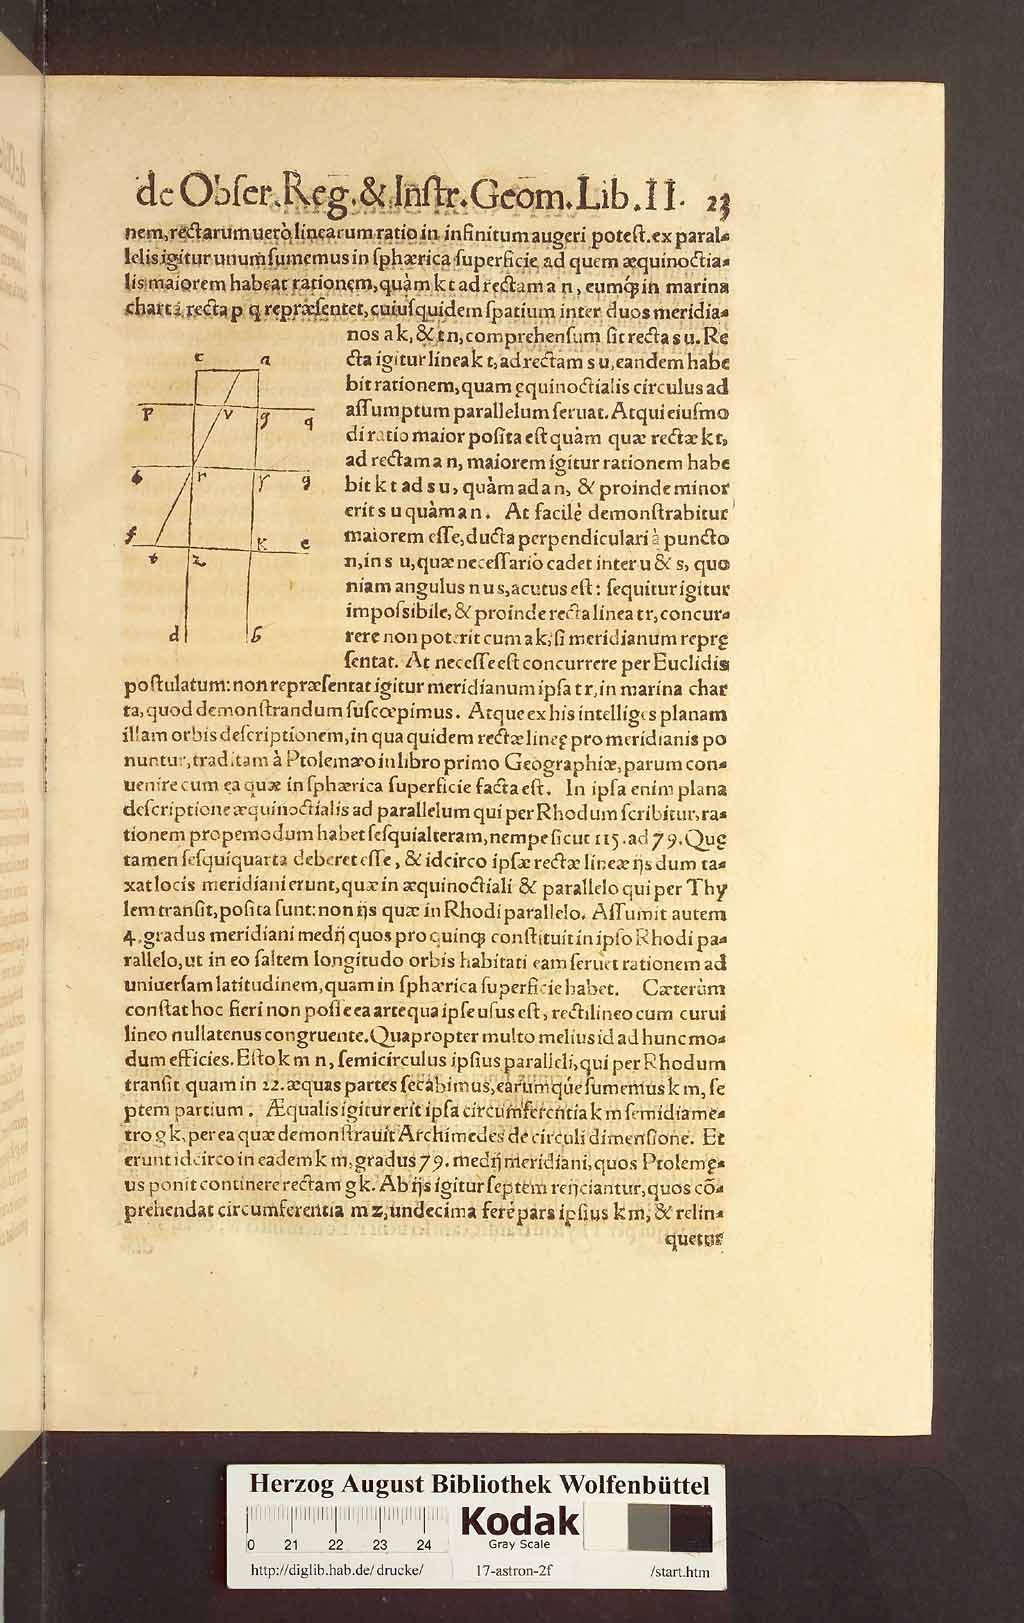 de Obser.Reg.& Instr.Geom.Lib.II. 23
nem, rectarum uerò linearum ratio in infinitum augeri potest. ex paral-
lelis igitur unum sumemus in sphærica superficie ad quem æquinoctia-
lis maiorem habeat rationem, quàm k t ad rectam a n, eumq́; in marina
charta recta p q repræsentet, cuius quidem spatium inter duos meridia-
nos a k, & t n, comprehensum sit recta s u. Re
cta igitur linea k t, ad rectam s u, eandem habe
bit rationem, quam ęquinoctialis circulus ad
assumptum parallelum seruat. Atqui eiusmo
di ratio maior posita est quàm quæ rectæ k t,
ad rectam a n, maiorem igitur rationem habe
bit k t ad s u, quàm ad a n, & proinde minor
erit s u quàm a n. At facilè demonstrabitur
maiorem esse, ducta perpendiculari à puncto
n, in s u, quæ necessariò cadet inter u & s, quo
niam angulus n u s, acutus est: sequitur igitur
impossibile, & proinde recta linea t r, concur-
rere non poterit cum a k, si meridianum reprę
sentat. At necesse est concurrere per Euclidis
postulatum: non repræsentat igitur meridianum ipsa t r, in marina char
ta, quod demonstrandum suscœpimus. Atque ex his intelliges planam
illam orbis descriptionem, in qua quidem rectæ lineę pro meridianis po
nuntur, traditam à Ptolemæo in libro primo Geographiæ, parum con-
uenire cum ea quæ in sphærica superficie facta est. In ipsa enim plana
descriptione æquinoctialis ad parallelum qui per Rhodum scribitur, ra-
tionem propemodum habet sesquialteram, nempe sicut 115. ad 79. Quę
tamen sesquiquarta deberet esse, & idcirco ipsæ rectæ lineæ ijs dum ta-
xat locis meridiani erunt, quæ in æquinoctiali & parallelo qui per Thy
lem transit, posita sunt: non ijs quæ in Rhodi parallelo. Assumit autem
4. gradus meridiani medij quos pro quinq; constituit in ipso Rhodi pa-
rallelo, ut in eo saltem longitudo orbis habitati eam seruet rationem ad
uniuersam latitudinem, quam in sphærica superficie habet. Cæterùm
constat hoc fieri non posse ea arte qua ipse usus est, rectilineo cum curui
lineo nullatenus congruente. Quapropter multo melius id ad hunc mo-
dum efficies. Esto k m n, semicirculus ipsius paralleli, qui per Rhodum
transit quam in 22. æquas partes secabimus, earumq́ue sumemus k m, se
ptem partium. Æqualis igitur erit ipsa circumferentia k m semidiame-
tro g k, per ea quæ demonstrauit Archimedes de circuli dimensione. Et
erunt idcirco in eadem k m, gradus 79. medij meridiani, quos Ptolemę-
us ponit continere rectam g k. Ab ijs igitur septem reijciantur, quos cō-
prehendat circumferentia m z, undecima ferè pars ipsius k m, & relin-
quetur
c a
p v g q
b r r g
f k e
t z
d b
Herzog August Bibliothek Wolfenbüttel
0 21 22 23 24
Kodak
Gray Scale
http://diglib.hab.de/drucke/ 17-astron-2f /start.htm